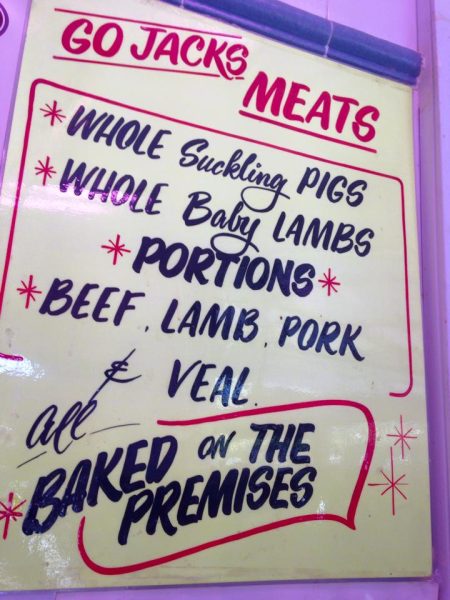 GO JACKS
MEATS
* WHOLE Suckling PIGS
* WHOLE Baby LAMBS
* PORTIONS *
* BEEF, LAMB, PORK
& VEAL.
all
* BAKED ON THE
PREMISES